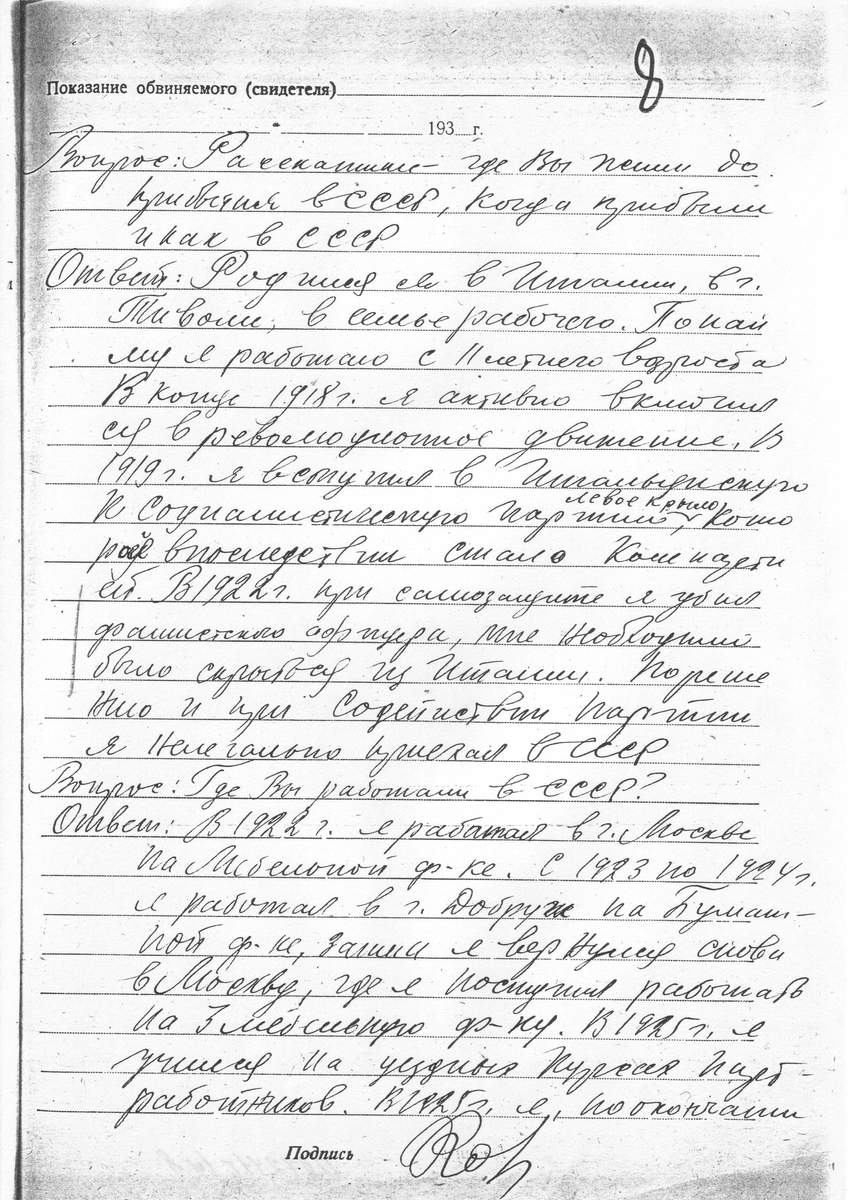 8
Показание обвиняемого (свидетеля)
193 г.
Вопрос: Расскажите где Вы жили до
прибытия в СССР, когда прибыли
и как в СССР
Ответ: Родился я в Италии, в г.
Тиволи, в семье рабочего. По най
му я работаю с 11 летнего возроста
В конце 1918 г. я активно включил
ся в революционное движение. В
1919 г. я вступил в Итальянскую
Социалистическую партию, левое крыло кото
рое впоследствии стало Компарти
ей. В 1922 г. при самозащите я убил
фашистского офицера, мне необходимо
было скрыться из Италии. По реше
нию и при содействии партии
я нелегально приехал в СССР
Вопрос: Где Вы работали в СССР?
Ответ: В 1922 г. я работал в г. Москве
на Мебельной ф-ке. С 1923 по 1924 г.
я работал в г. Добруж на Бумаж-
ной ф-ке, затем я вернулся снова
в Москву, где я поступил работать
на 3 мебельную ф-ку. В 1925 г. я
учился на уездных курсах парт-
работников. В 1925 г. я, по окончании
Подпись